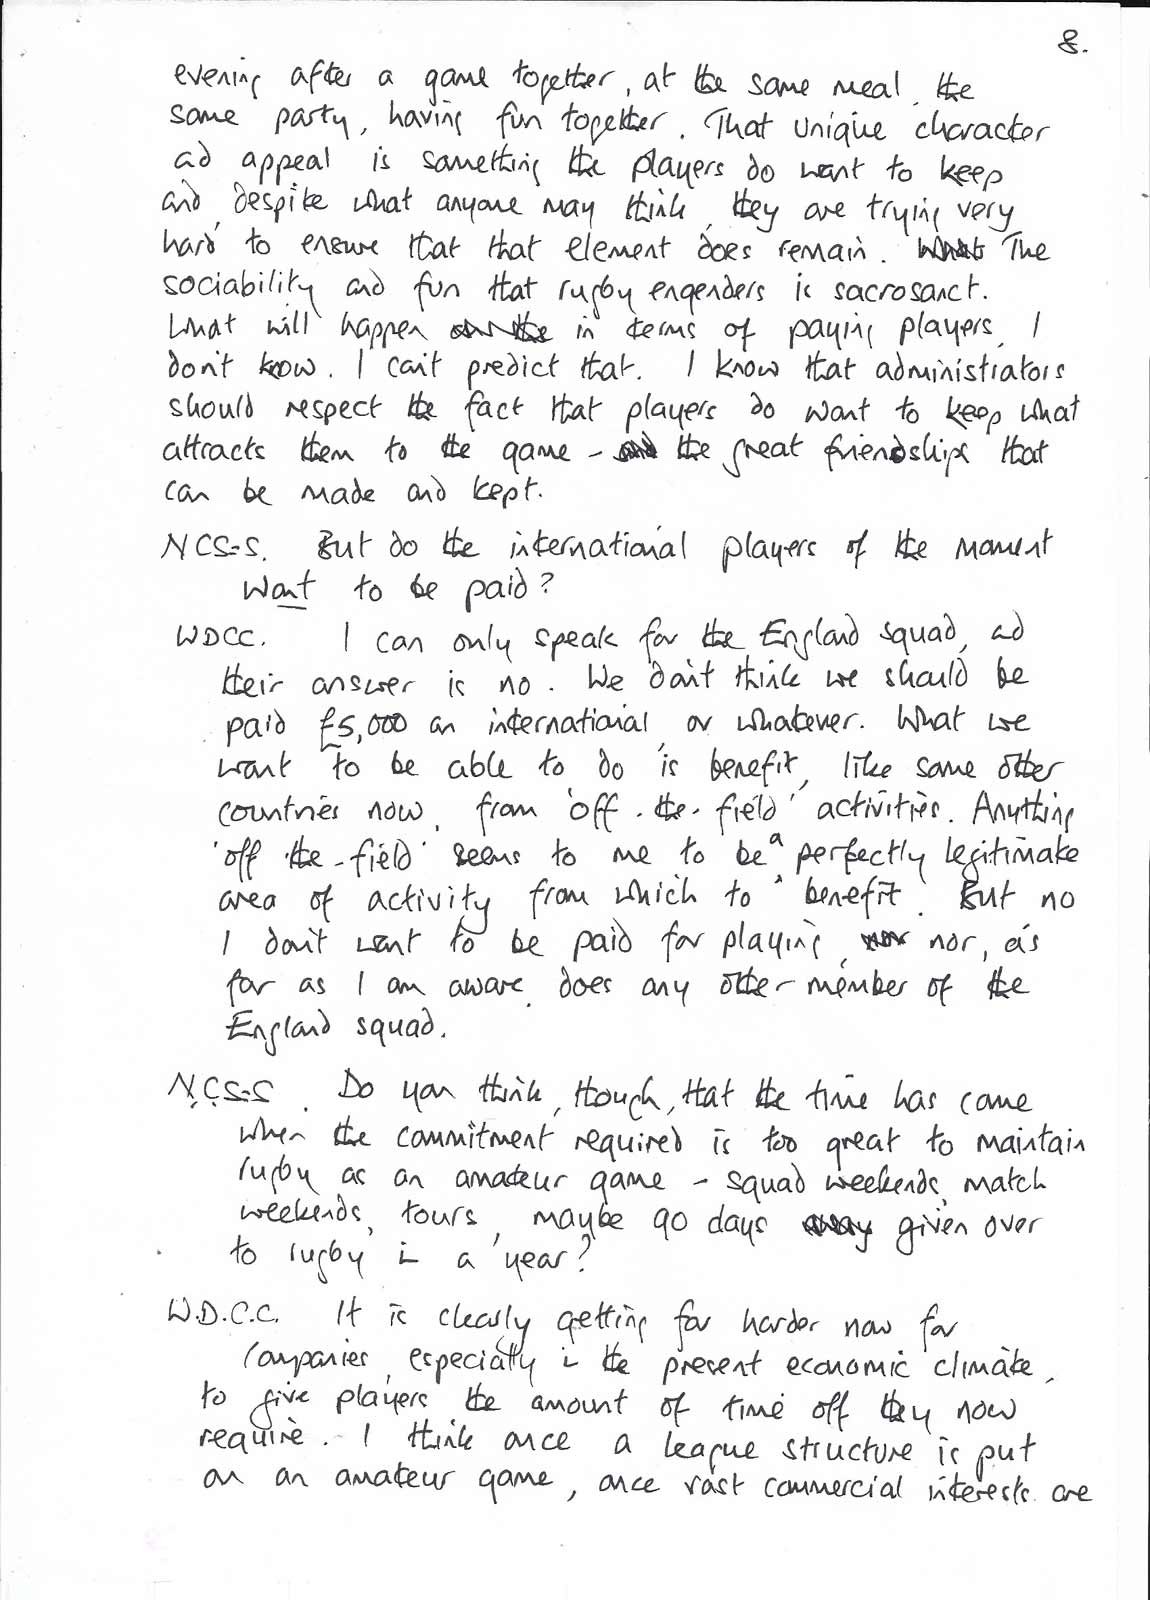 8.
evening after a game together, at the same meal, the
same party, having fun together. That unique character
ad appeal is something the players do want to keep
and, despite what anyone may think, they are trying very
hard to ensure that that element does remain. What The
sociability and fun that rugby engenders is sacrosanct.
What will happen in terms of paying players, I
don't know. I can't predict that. I know that administrators
should respect the fact that players do want to keep what
attracts them to the game - and the great friendships that
can be made and kept.
NCS-S. But do the international players of the moment
want to be paid?
WDCC. I can only speak for the England squad, ad
their answer is no. We don't think we should be
paid £5,000 an international, or whatever. What we
want to be able to do is benefit, like some other
countries now, from 'off-the-field' activities. Anything
'off-the-field' seems to me to be a perfectly legitimate
area of activity from which to benefit. But no
I don't want to be paid for playing, nor nor, as
far as I am aware, does any other member of the
England squad.
N.C.S-S. Do you think, though, that the time has come
when the commitment required is too great to maintain
rugby as an amateur game - squad weekends, match
weekends, tours, maybe 90 days away given over
to rugby in a year?
W.D.C.C. It is clearly getting far harder now for
companies, especially in the present economic climate,
to give players the amount of time off they now
require. I think once a league structure is put
on an amateur game, once vast commercial interests are